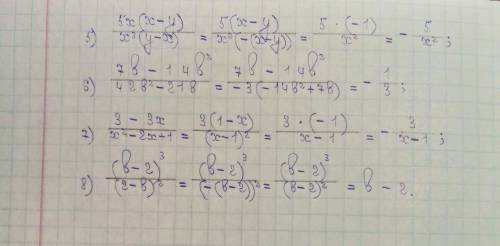 5) 5x(x-y)/x³(y-x) = 5(x-y)/x²(-(x-y)) = 5·(-1)/x² = -5/x²;
6) 7b-14b²/42b²-21b = 7b-14b²/-3(-14b²+7b) = -1/3;
7) 3-3x/x²-2x+1 = 3(1-x)/(x-1)² = 3·(-1)/x-1 = -3/x-1;
8) (b-2)³/(2-b)² = (b-2)³/(-(b-2))² = (b-2)³/(b-2)² = b-2.